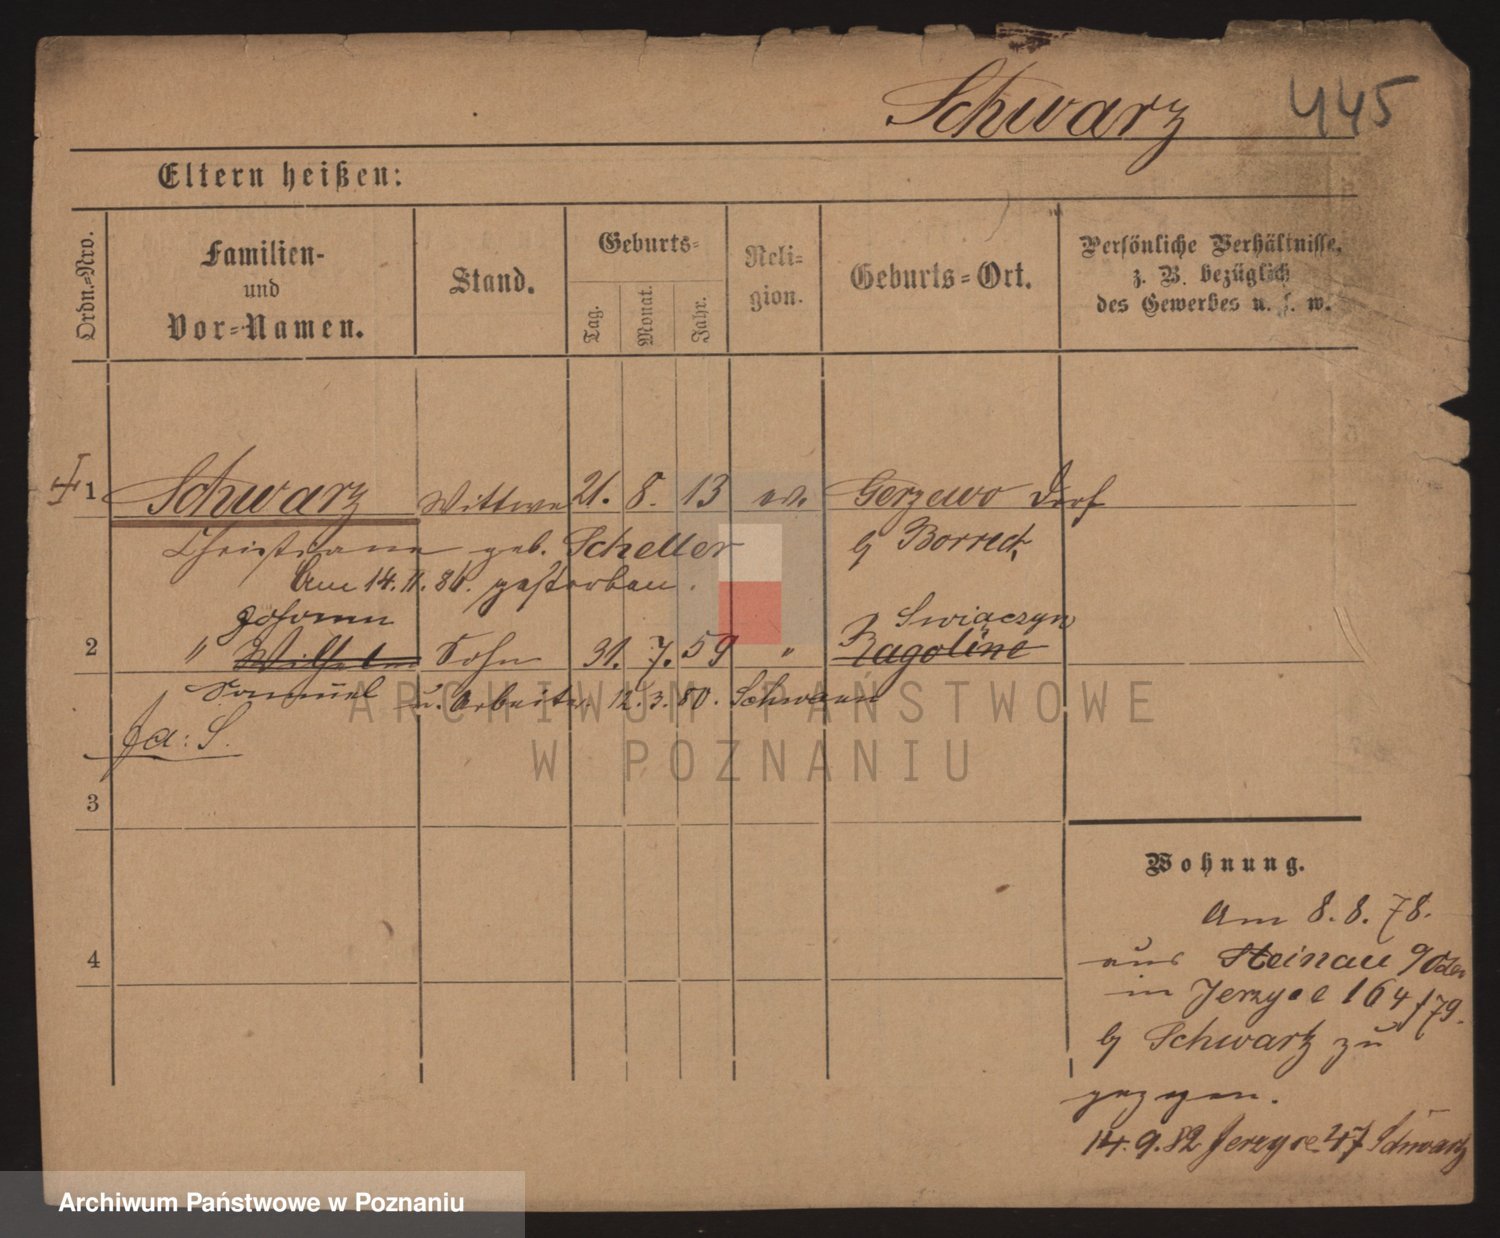 Schwarz 445
Eltern heißen:
Ordn.-Nro.
Familien-
und
Vor-Namen.
Stand.
Geburts-
Tag.
Monat.
Jahr.
Reli-
gion.
Geburts-Ort.
Persönliche Verhältnisse,
z. B. bezüglich
des Gewerbes u. s. w.
1 Schwarz Wittwe 21. 8. 13 ev. Gerzewo Dorf
Christiane geb. Scheller b/ Borreck
Am 14.11.86. gestorben.
Johann Swiączyn
2 " Wilhelm Sohn 31. 7. 59 " Ragoline
Samuel u. Arbeiter 12.3.80. Schwaan
Fa: S.
3
4
Wohnung.
Am 8.8.78.
aus Steinau a/Oder
in Jerzyce 164/79.
b/ Schwartz zu
gezogen.
14.9.82 Jerzyce 47 Schwartz
ARCHIWUM PAŃSTWOWE
W POZNANIU
Archiwum Państwowe w Poznaniu